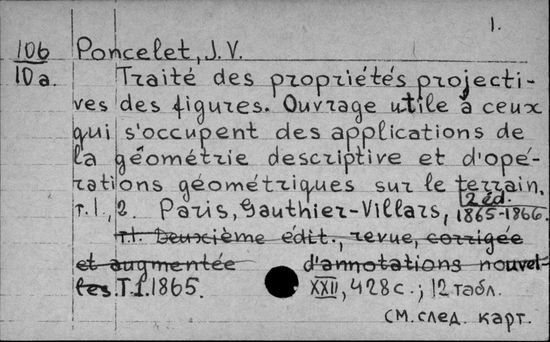 1.
106 Poncelet, J. V.
10a. Traité des propriétés projecti-
ves des figures. Ouvrage utile à ceux
qui s'occupent des applications de
la géométrie descriptive et d'opé-
rations géométriques sur le terrain.
2 éd.
т. 1., 2. Paris, Gauthier-Villars, 1865-1866.
т.1. Deuxième édit., revue, corrigée
et augmentée d'annotations nouvel-
les. T.1.1865. XXII, 428 с.; 12 табл.
см. след. карт.